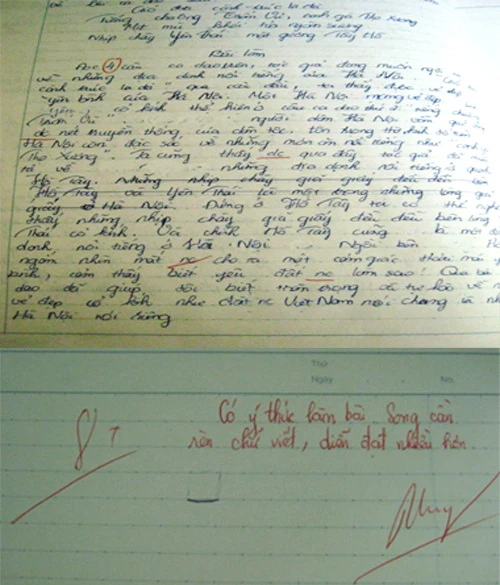 Gió đưa cành trúc la đà
Tiếng chuông Trấn Vũ, canh gà Thọ Xương
Mịt mù khói tỏa ngàn sương
Nhịp chày Yên Thái mặt gương Tây Hồ
Bài làm
Đọc 4 câu ca dao trên, tác giả đang muốn
về những địa danh nổi tiếng của Hà Nội
cành trúc la đà" qua câu đầu ta thấy được vẻ đẹp
yên bình của Hà Nội. Một Hà Nội mang vẻ đẹp
cổ kính thể hiện ở câu ca dao thứ 2: "tiếng chuông
Trấn Vũ" người dân Hà Nội vẫn giữ
đc nét truyền thống của dân tộc.
Hà Nội còn đặc sắc về những món ăn nổi tiếng như "canh gà
Thọ Xương". Ta cũng thấy đc qua đây tác giả đã
tả về những địa danh nổi tiếng ở
Hồ Tây. Những nhịp chày giã giấy đều đều bên
Hồ Tây và Yên Thái là một trong những làng giã
giấy ở Hà Nội. Đứng ở Hồ Tây ta có thể nghe
thấy những nhịp chày giã giấy đều đều bên làng Yên
Thái cổ kính. Và chính Hồ Tây cũng là một địa
danh nổi tiếng ở Hà Nội Ngồi bên Hồ
ngắm nhìn mặt nc cho ta một cảm giác thoải mái yên
bình, còn thấy biết yêu đất nc làm sao! Qua bài ca
dao đã giúp tôi biết trân trọng và tự hào về
vẻ đẹp cổ kính như đất nc Việt Nam nói chung và
Hà Nội nói riêng
Thứ
Ngày No.
8
Có ý thức làm bài. Song cần
rèn chữ viết, diễn đạt nhiều hơn